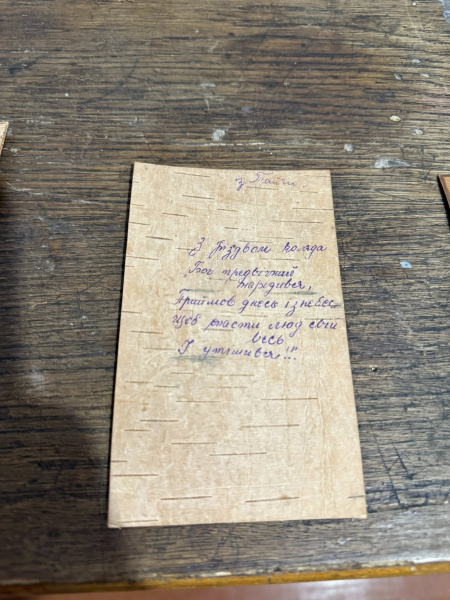 з Тайги
З Різдвом коляда
Бог предвічний
народився,
Прийшов днесь із небес
Щоб спасти люд свій
весь
І утішився!!!